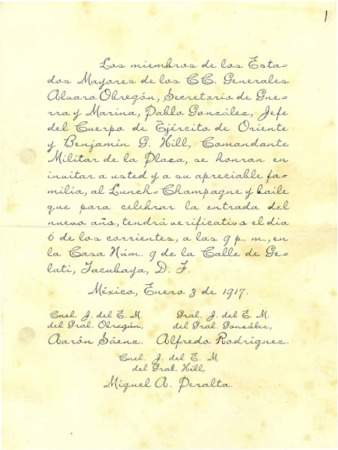 1
Los miembros de los Esta-
dos Mayores de los C.C. Generales
Alvaro Obregón, Secretario de Gue-
rra y Marina, Pablo González, Jefe
del Cuerpo de Ejército de Oriente
y Benjamín G. Hill, Comandante
Militar de la Plaza, se honran en
invitar a usted y a su apreciable fa-
milia, al Lunch-Champagne y baile
que para celebrar la entrada del
nuevo año, tendrá verificativo el día
6 de los corrientes, a las 9 p. m., en
la Casa Núm. 9 de la Calle de Ge-
lati, Tacubaya, D. F.
México, Enero 3 de 1917.
Cnel. J. del E. M.
del Gral. Obregón,
Aarón Sáenz.
Gral. J. del E. M.
del Gral. González,
Alfredo Rodríguez.
Cnel. J. del E. M.
del Gral. Hill,
Miguel A. Peralta.